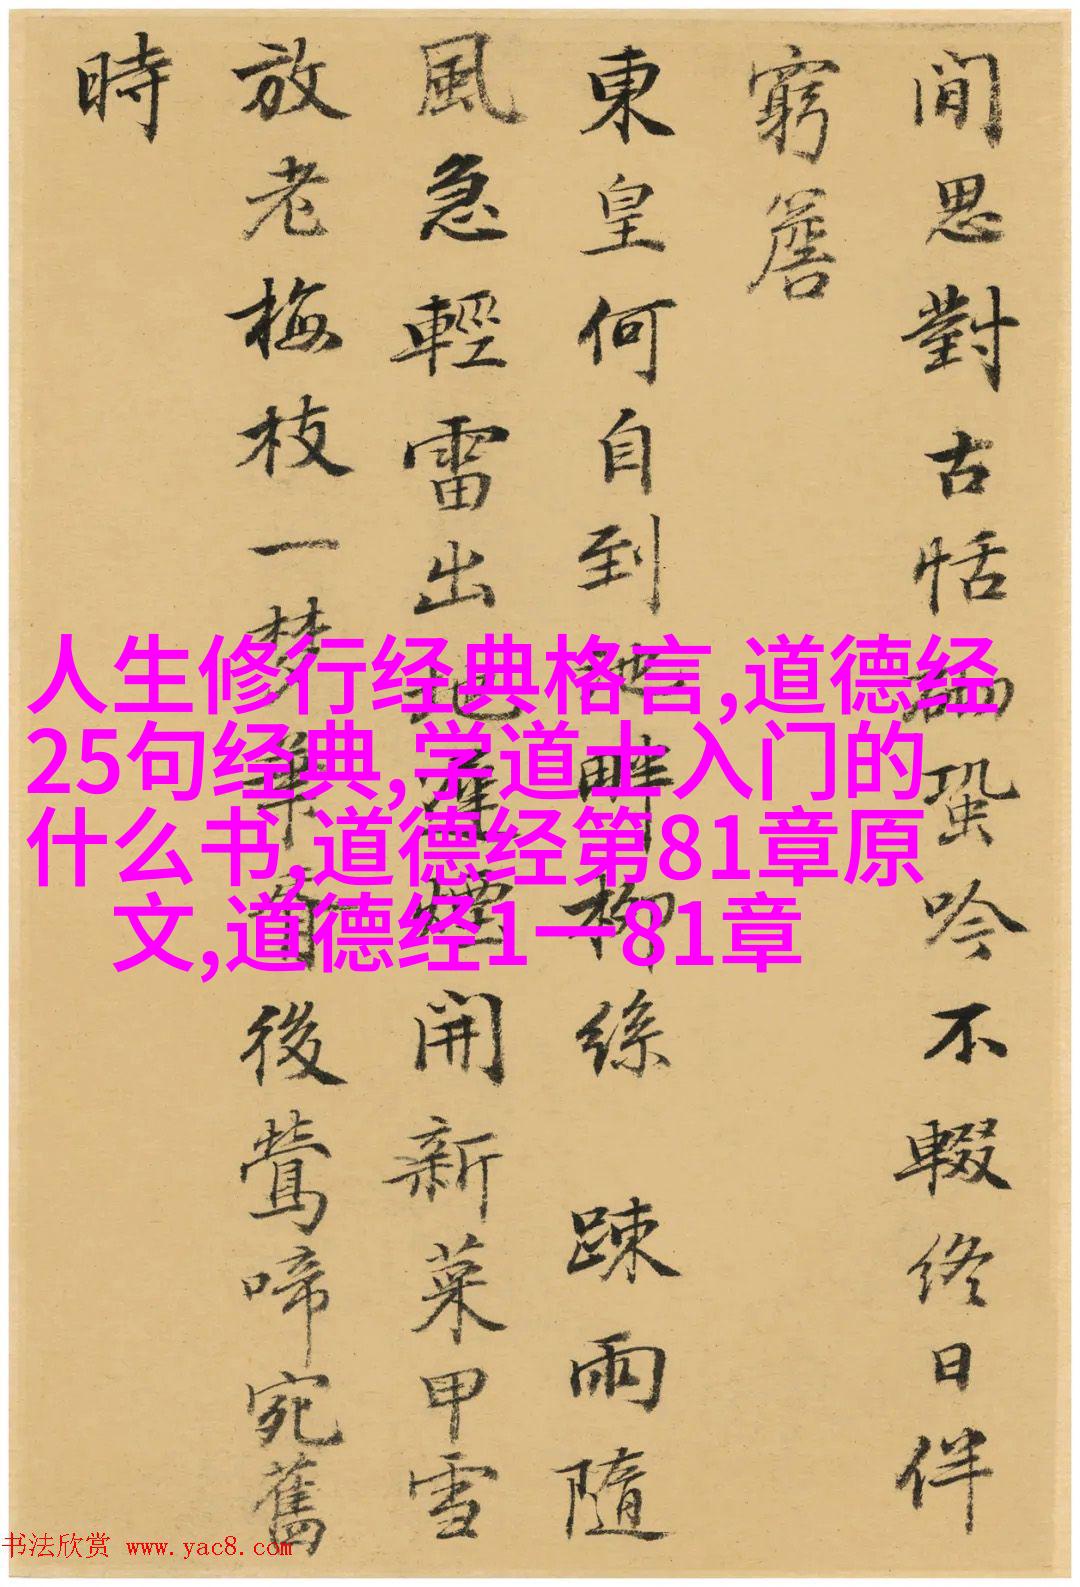 閒思對古恬 蛩吟不輟終日伴
窮簷
東皇何自到池畔柳絲 踈雨隨
風急輕雷出地 煙開新菜甲雪
放老梅枝一梦 後鶯啼宛舊
時
人生修行经典格言,道德经
25句经典,学道士入门的
什么书,道德经第81章原
文,道德经1一81章
书法欣赏 www.yac8.com